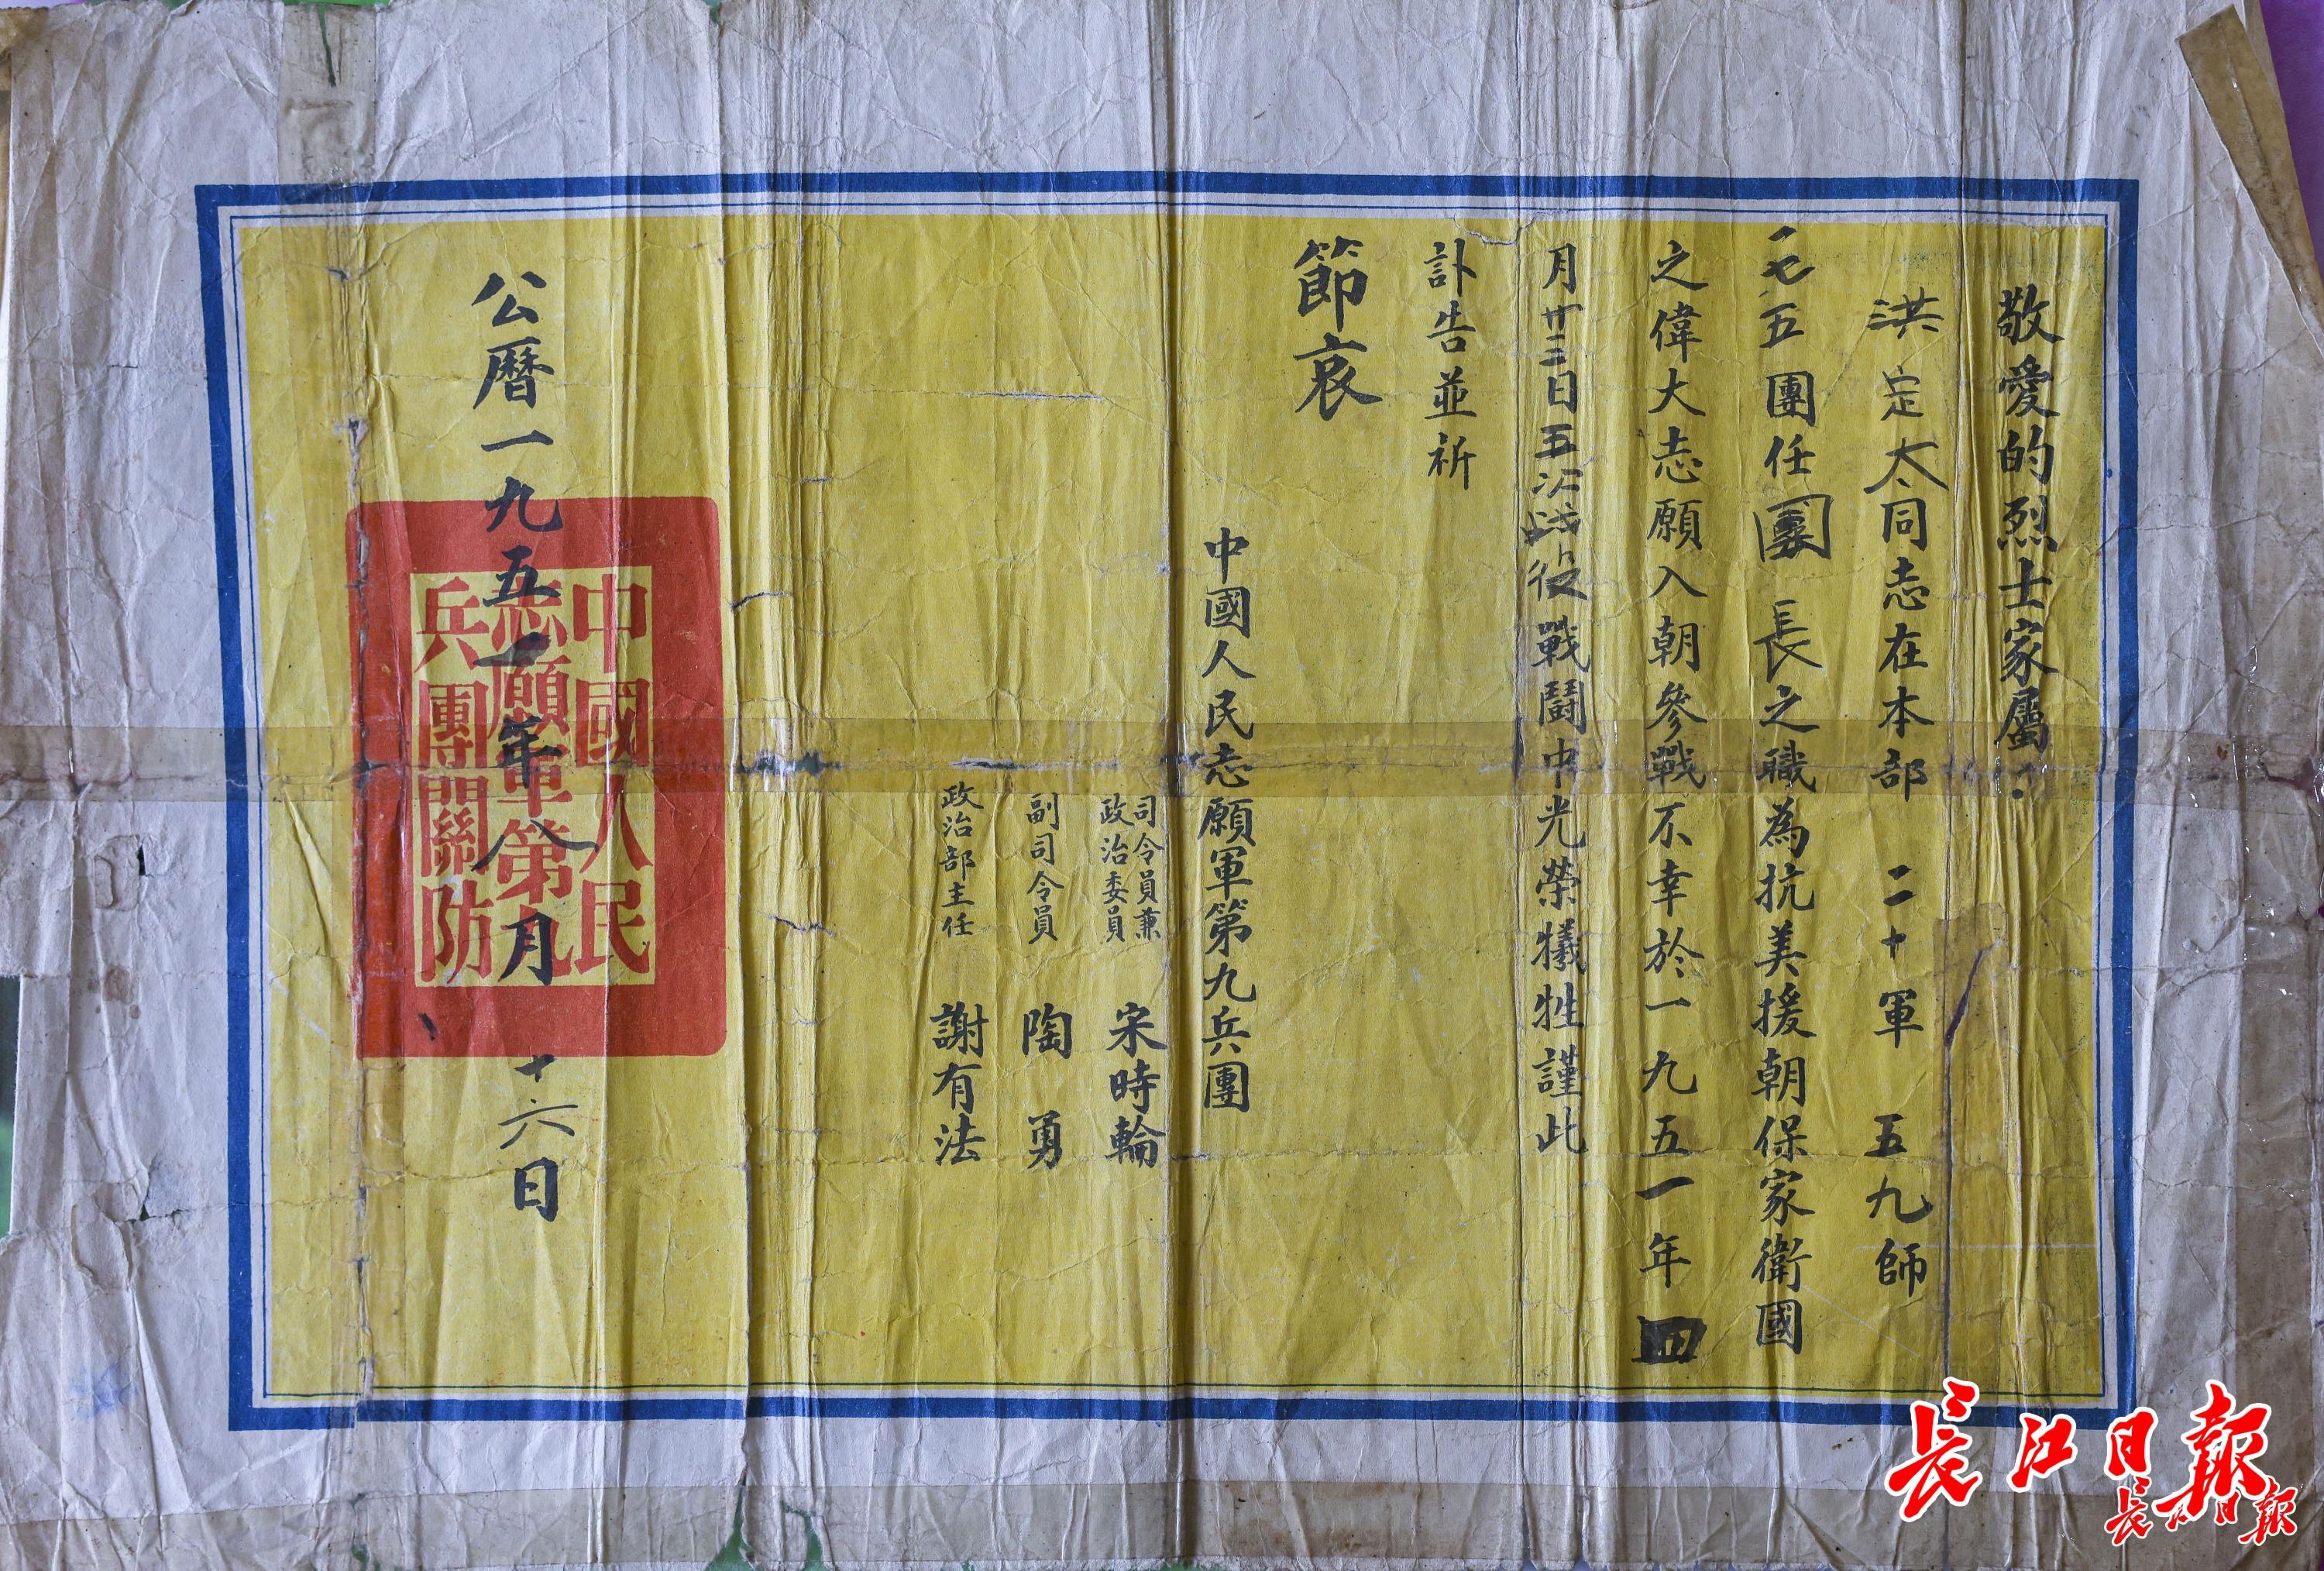 敬愛的烈士家屬：
洪定太同志在本部 二十軍 五九師
一七五團任團長之職為抗美援朝保家衛國
之偉大志願入朝參戰不幸於一九五一年四
月廿三日五次战役戰鬪中光榮犧牲謹此
訃告並祈
節哀
中國人民志願軍第九兵團
司令員兼
政治委員 宋時輪
副司令員 陶勇
政治部主任 謝有法
公曆一九五一年八月十六日
中國人民
志願軍第九
兵團關防
長江日報
長江日報